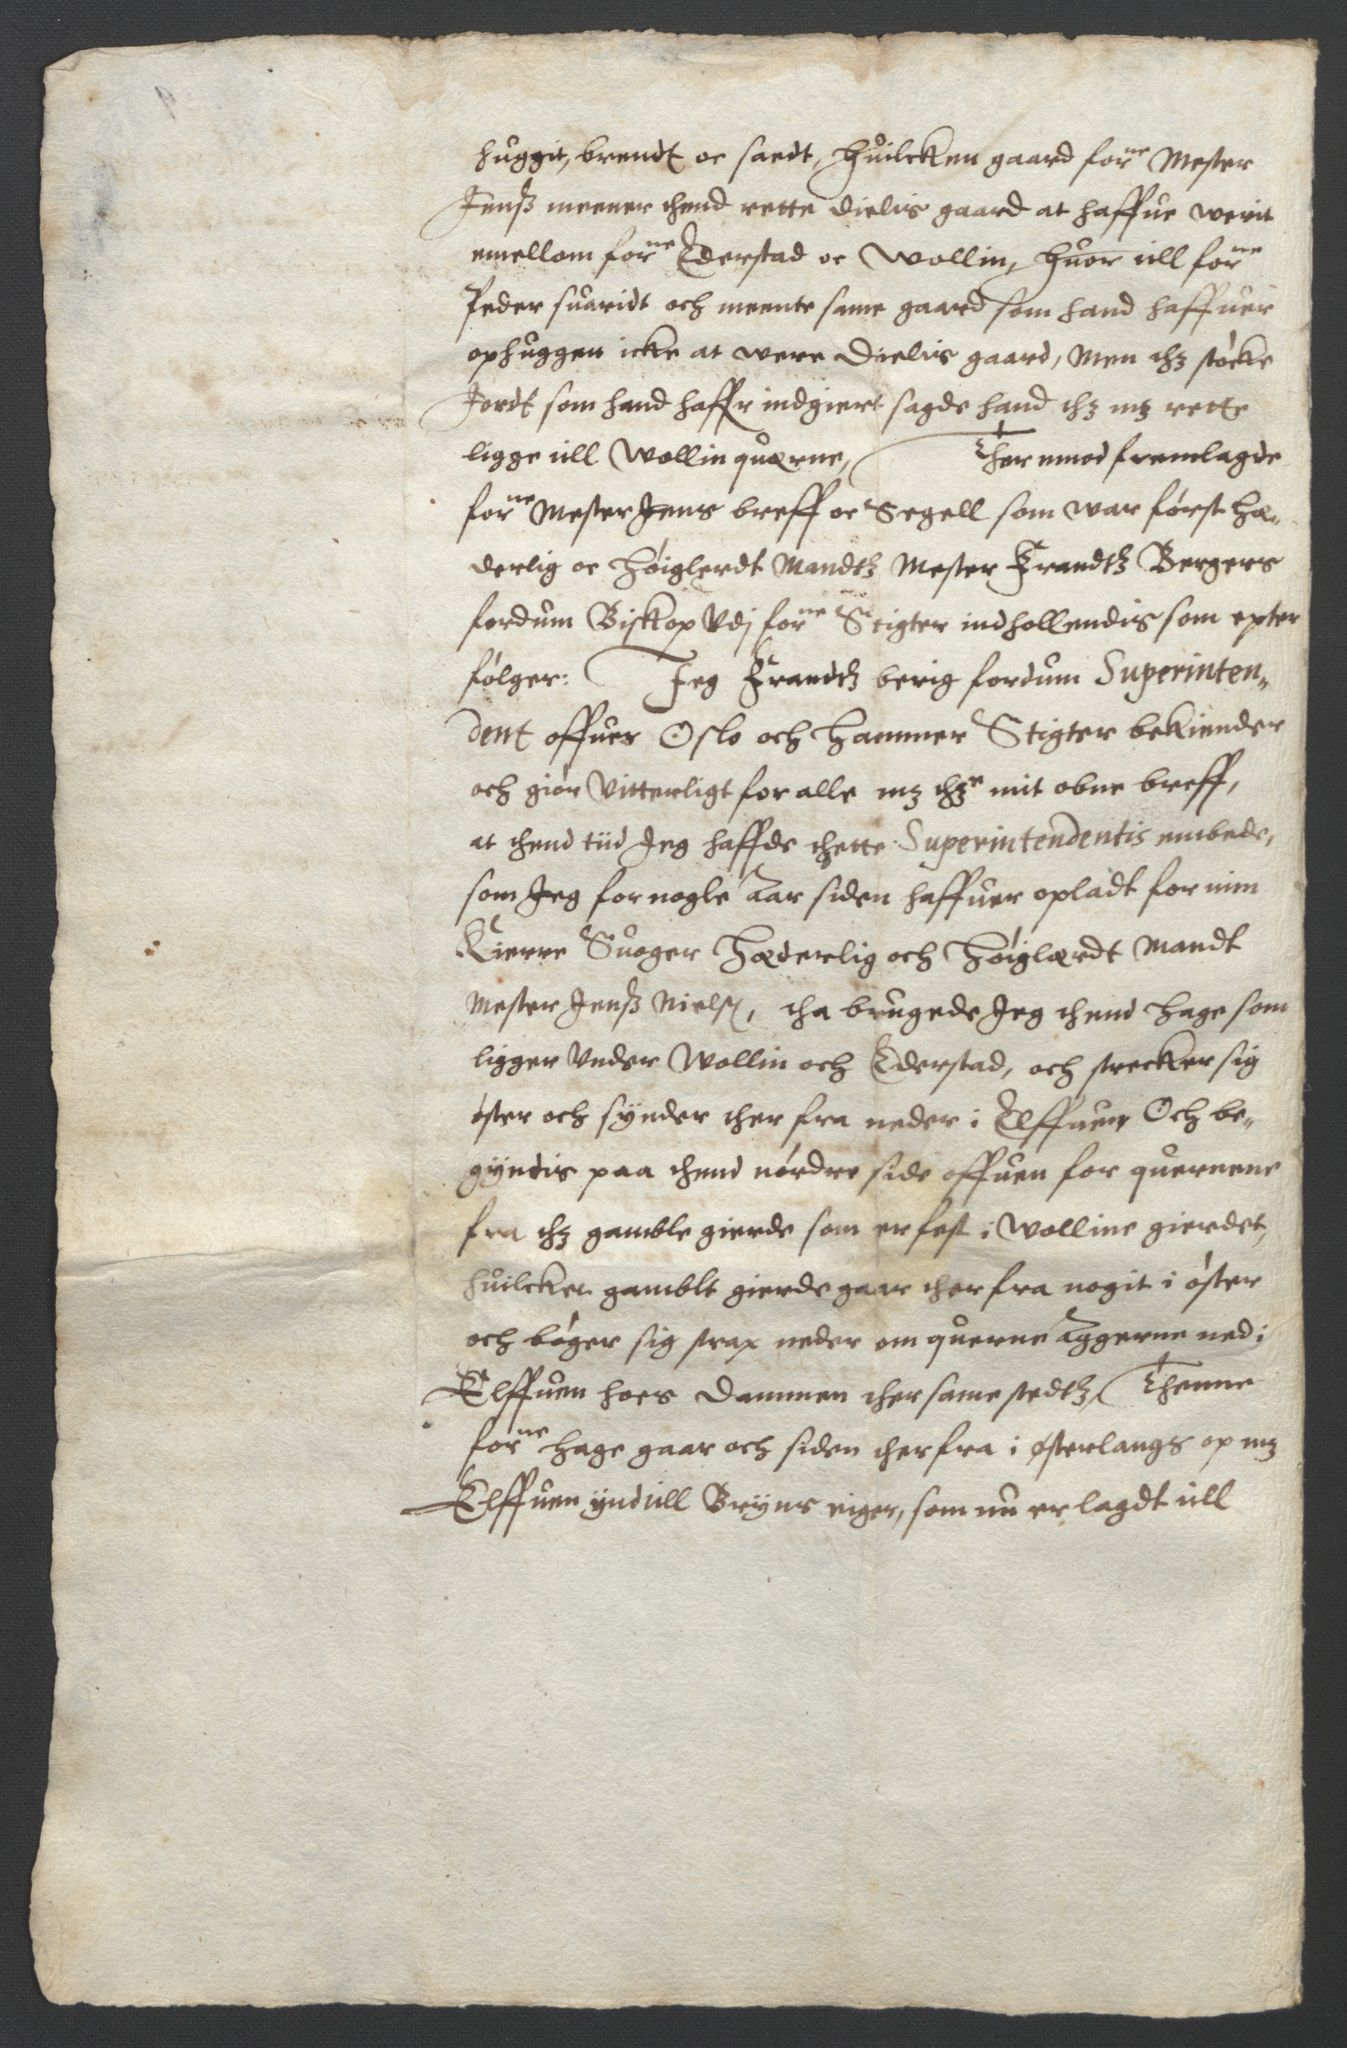 huggit, brendt oc saedt, huilcken gaard forne Mester
Jenß meener thend rette dielis gaard at haffue werit
emellom forne Ederstad oc Wollin, huor till forne
Peder suaridt och meente same gaard som hand haffuer
ophuggen icke at were dielis gaard, Men thz støcke
Jordt som hand haffr indgiert sagde hand thz mz rette
ligge till Wollin quærne, Ther emod fremlagde
forne Mester Jens breff oc Segell som war først Hæ-
derlig oc høiglerdt Mandtz Mester Frandtz Bergers
fordum Biskop Vdj forne Stigter indhollendis som epter
følger: Jeg Frandtz berig fordum Superinten-
dent offuer Oslo och Hammer Stigter bekiender
och giør Vitterligt for alle mz thze mit obne breff,
at thend tiid Jeg haffde thette Superintendentis embede,
som Jeg for nogle Aar siden haffuer opladt for min
Kierre Suoger Hæderlig och Høiglærdt Mandt
Mester Jenß Niels, tha brugede Jeg thend Hage som
ligger Vnder Wollin och Ederstad, och strecker sig
øster och sÿnder ther fra neder i Elffuen Och be-
gÿndis paa thend nørdre side offuen for quernene
fra thz gamble gierde som er fest i Wolline gierdet,
huilcket gamblt gierde gaar ther fra nogit i øster
och bøger sig strax neder om querne Aggerne ned i
Elffuen hoes Dammen ther same stedtz, Thenne
forne Hage gaar och siden ther fra i østerlangs op mz
Elffuen ÿnd till Brÿns eiger, som nu er lagdt till